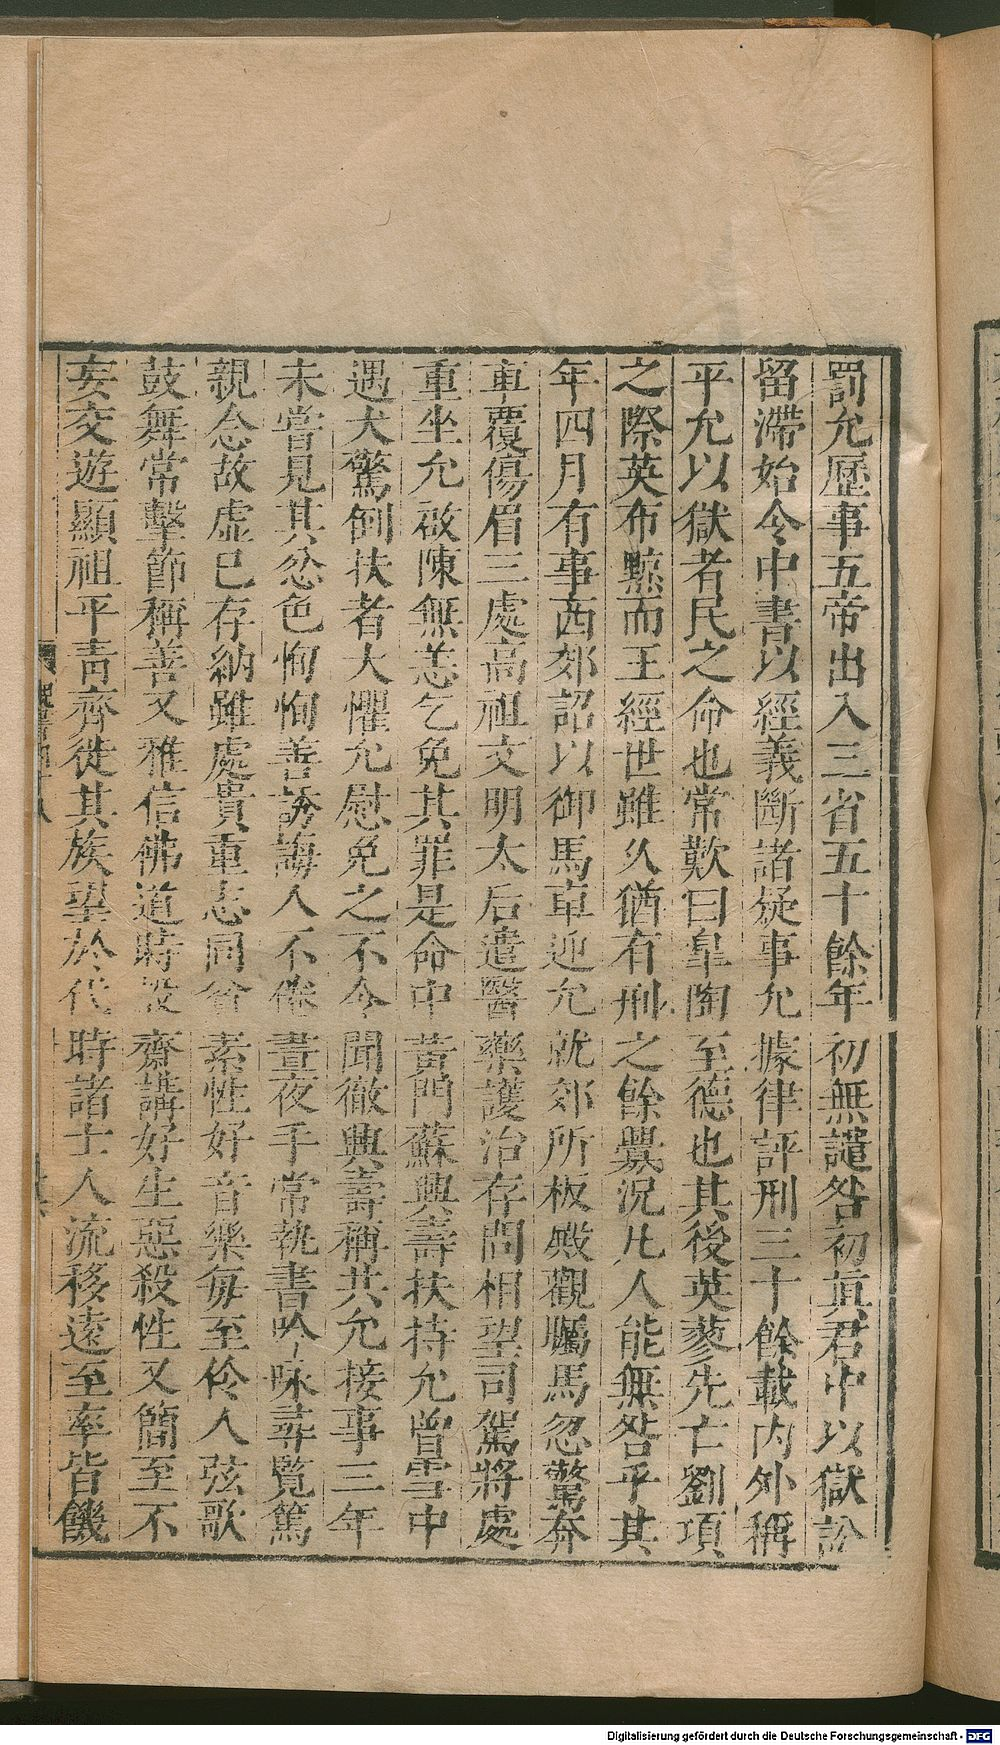 罰允歷事五帝出入三省五十餘年初無譴咎初眞君中以獄訟
留滯始令中書以經義斷諸疑事允據律評刑三十餘載內外稱
平允以獄者民之命也常歎曰皐陶至德也其後英蓼先亡劉項
之際英布黥而王經世雖久猶有刑之餘舋況凡人能無咎乎其
年四月有事西郊詔以御馬車迎允就郊所板殿觀矚馬忽驚奔
車覆傷眉三處高祖文明太后遣醫藥護治存問相望司駕將處
重坐允啟陳無恙乞免其罪是命中黃門蘇興壽扶持允曾雪中
遇犬驚倒扶者大懼允慰免之不令聞徹興壽稱共允接事三年
未嘗見其忿色恂恂善誘誨人不倦晝夜手常執書吟咏尋覽篤
親念故虛已存納雖處貴重志同貧素性好音樂每至伶人弦歌
鼓舞常擊節稱善又雅信佛道時設齋講好生惡殺性又簡至不
妄交遊顯祖平青齊徙其族望於代時諸士人流移遠至率皆饑
魏書四十八
Digitalisierung gefördert durch die Deutsche Forschungsgemeinschaft - DFG